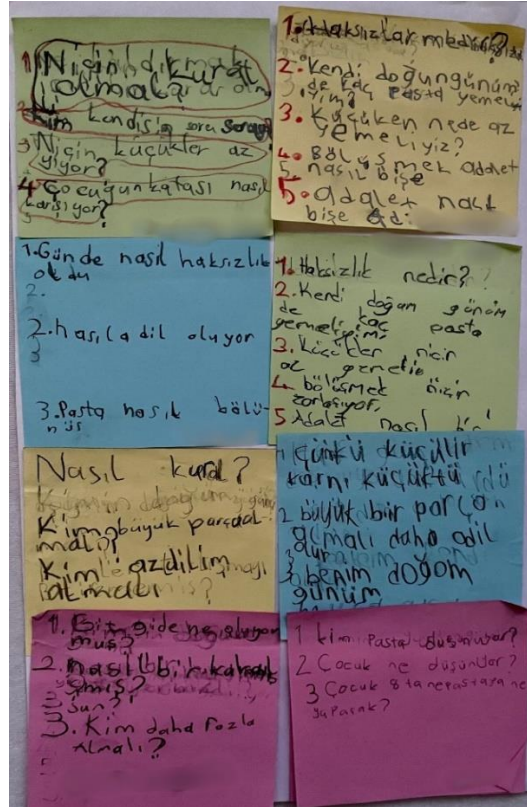 1 Niçin kural
olmalı?
2 Kim kendisine soru
3 Niçin küçükler az
yiyor?
4 Çocuğun kafası nasıl
karışıyor?
1. Haksızlar nedir?
2. Kendi doğungünüm
de kaç pasta yemeli
3. Küçüken nede az
yemeliyiz?
4. Bölüşmek adalet
5. nasıl bişe
5. adalet nasıl
bişe
1. Günde nasıl haksızlık
oldu
2.
2. nasıl adil oluyor
3
3. Pasta nasıl bölü-
nüs
1. Haksızlık nedir?
2. Kendi doğum günüm
de kaç pasta
yemeliyim
3. Küçükler niçin
az
4. bölüşmek niçin
zorlaşıyor,
5 Adalet nasıl bir
Nasıl kural?
Kim büyük parça al
malı?
Kim az dilim
almalı
1 çünkü küçülir
karnı küçüktü
2 büyük bir parça
almalı daha adil
olur
3 benim doğom
günüm
1. Git gide ne oluyor
muş?
2. nasıl bir karar
3. Kim daha fozla
Almalı?
1 kim pasta düşünüyor?
2 Çocuk ne düşünüor?
3 Çocuk 8 tane pastaya ne
yapacak?